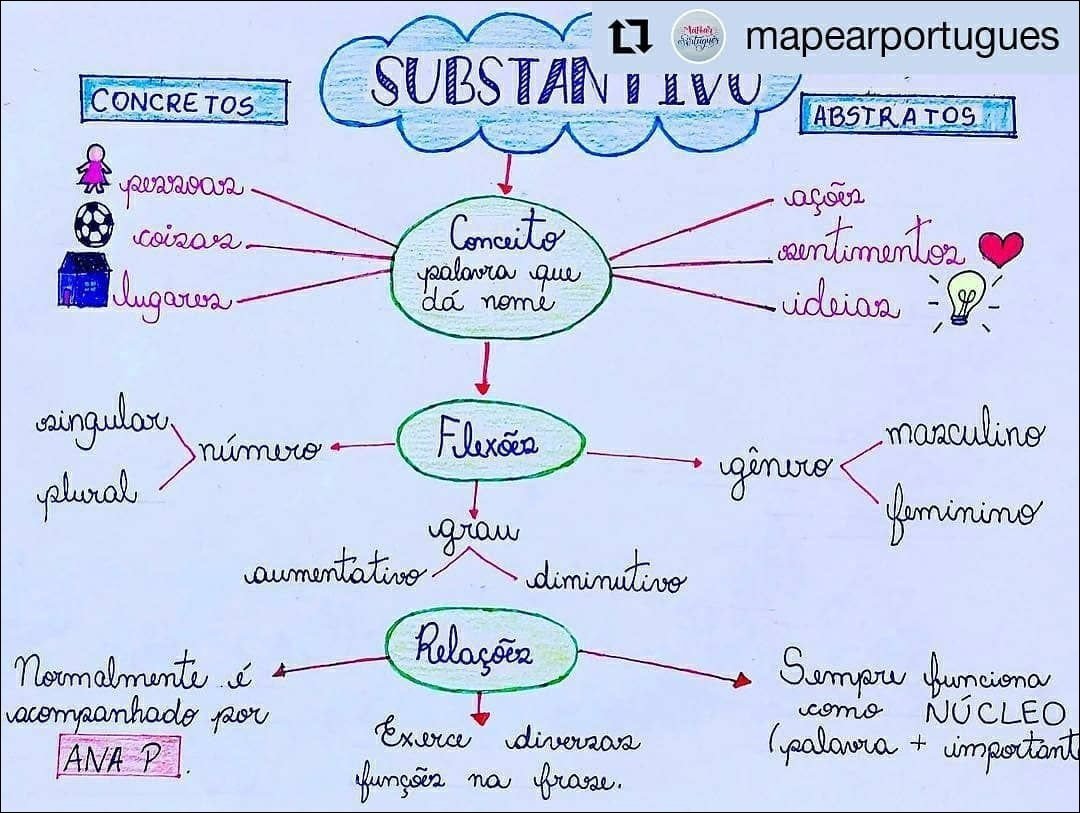 mapearportugues
Mapear
Português
SUBSTANTIVO
CONCRETOS
ABSTRATOS
pessoas
coisas
lugares
Conceito
palavra que
dá nome
ações
sentimentos
ideias
singular
plural
número
Flexões
gênero
masculino
feminino
grau
aumentativo
diminutivo
Relações
Normalmente é
acompanhado por
ANA P.
Exerce diversas
funções na frase.
Sempre funciona
como NÚCLEO
(palavra + important